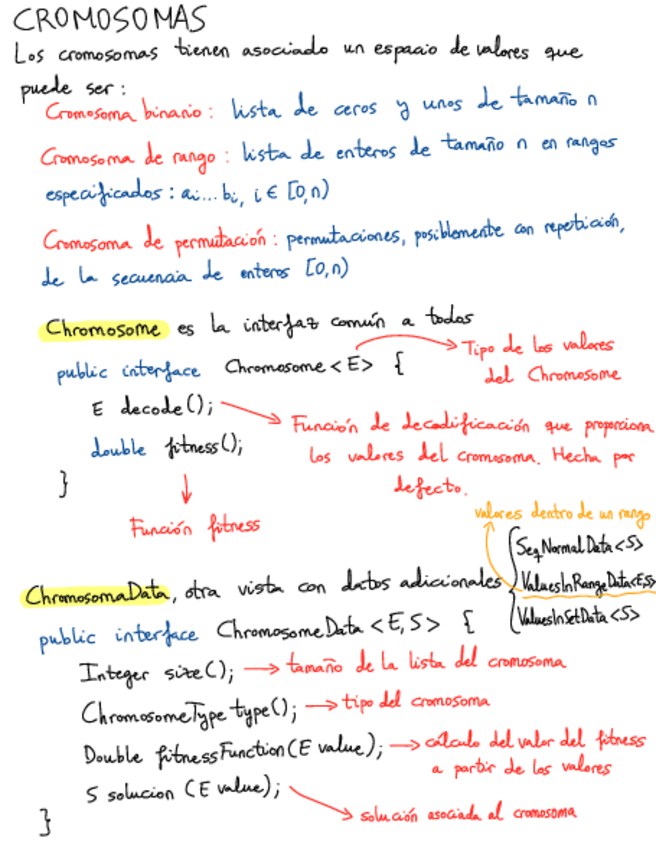 CROMOSOMAS
Los cromosomas tienen asociado un espacio de valores que
puede ser:
Cromosoma binario: lista de ceros y unos de tamaño n
Cromosoma de rango: lista de enteros de tamaño n en rangos
especificados: ai...bi, i ∈ [0,n)
Cromosoma de permutación: permutaciones, posiblemente con repetición,
de la secuencia de enteros [0,n)
Chromosome es la interfaz común a todos
public interface Chromosome <E> {
Tipo de los valores
del Chromosome
E decode();
Función de decodificación que proporciona
los valores del cromosoma. Hecha por
defecto.
double fitness();
}
Función fitness
valores dentro de un rango
SeqNormalData<S>
ValuesInRangeData<E,S>
ValuesInSetData<S>
ChromosomaData, otra vista con datos adicionales
public interface ChromosomeData <E,S> {
Integer size(); → tamaño de la lista del cromosoma
ChromosomeType type(); → tipo del cromosoma
Double fitnessFunction(E value); → cálculo del valor del fitness
a partir de los valores
S solucion (E value);
solución asociada al cromosoma
}